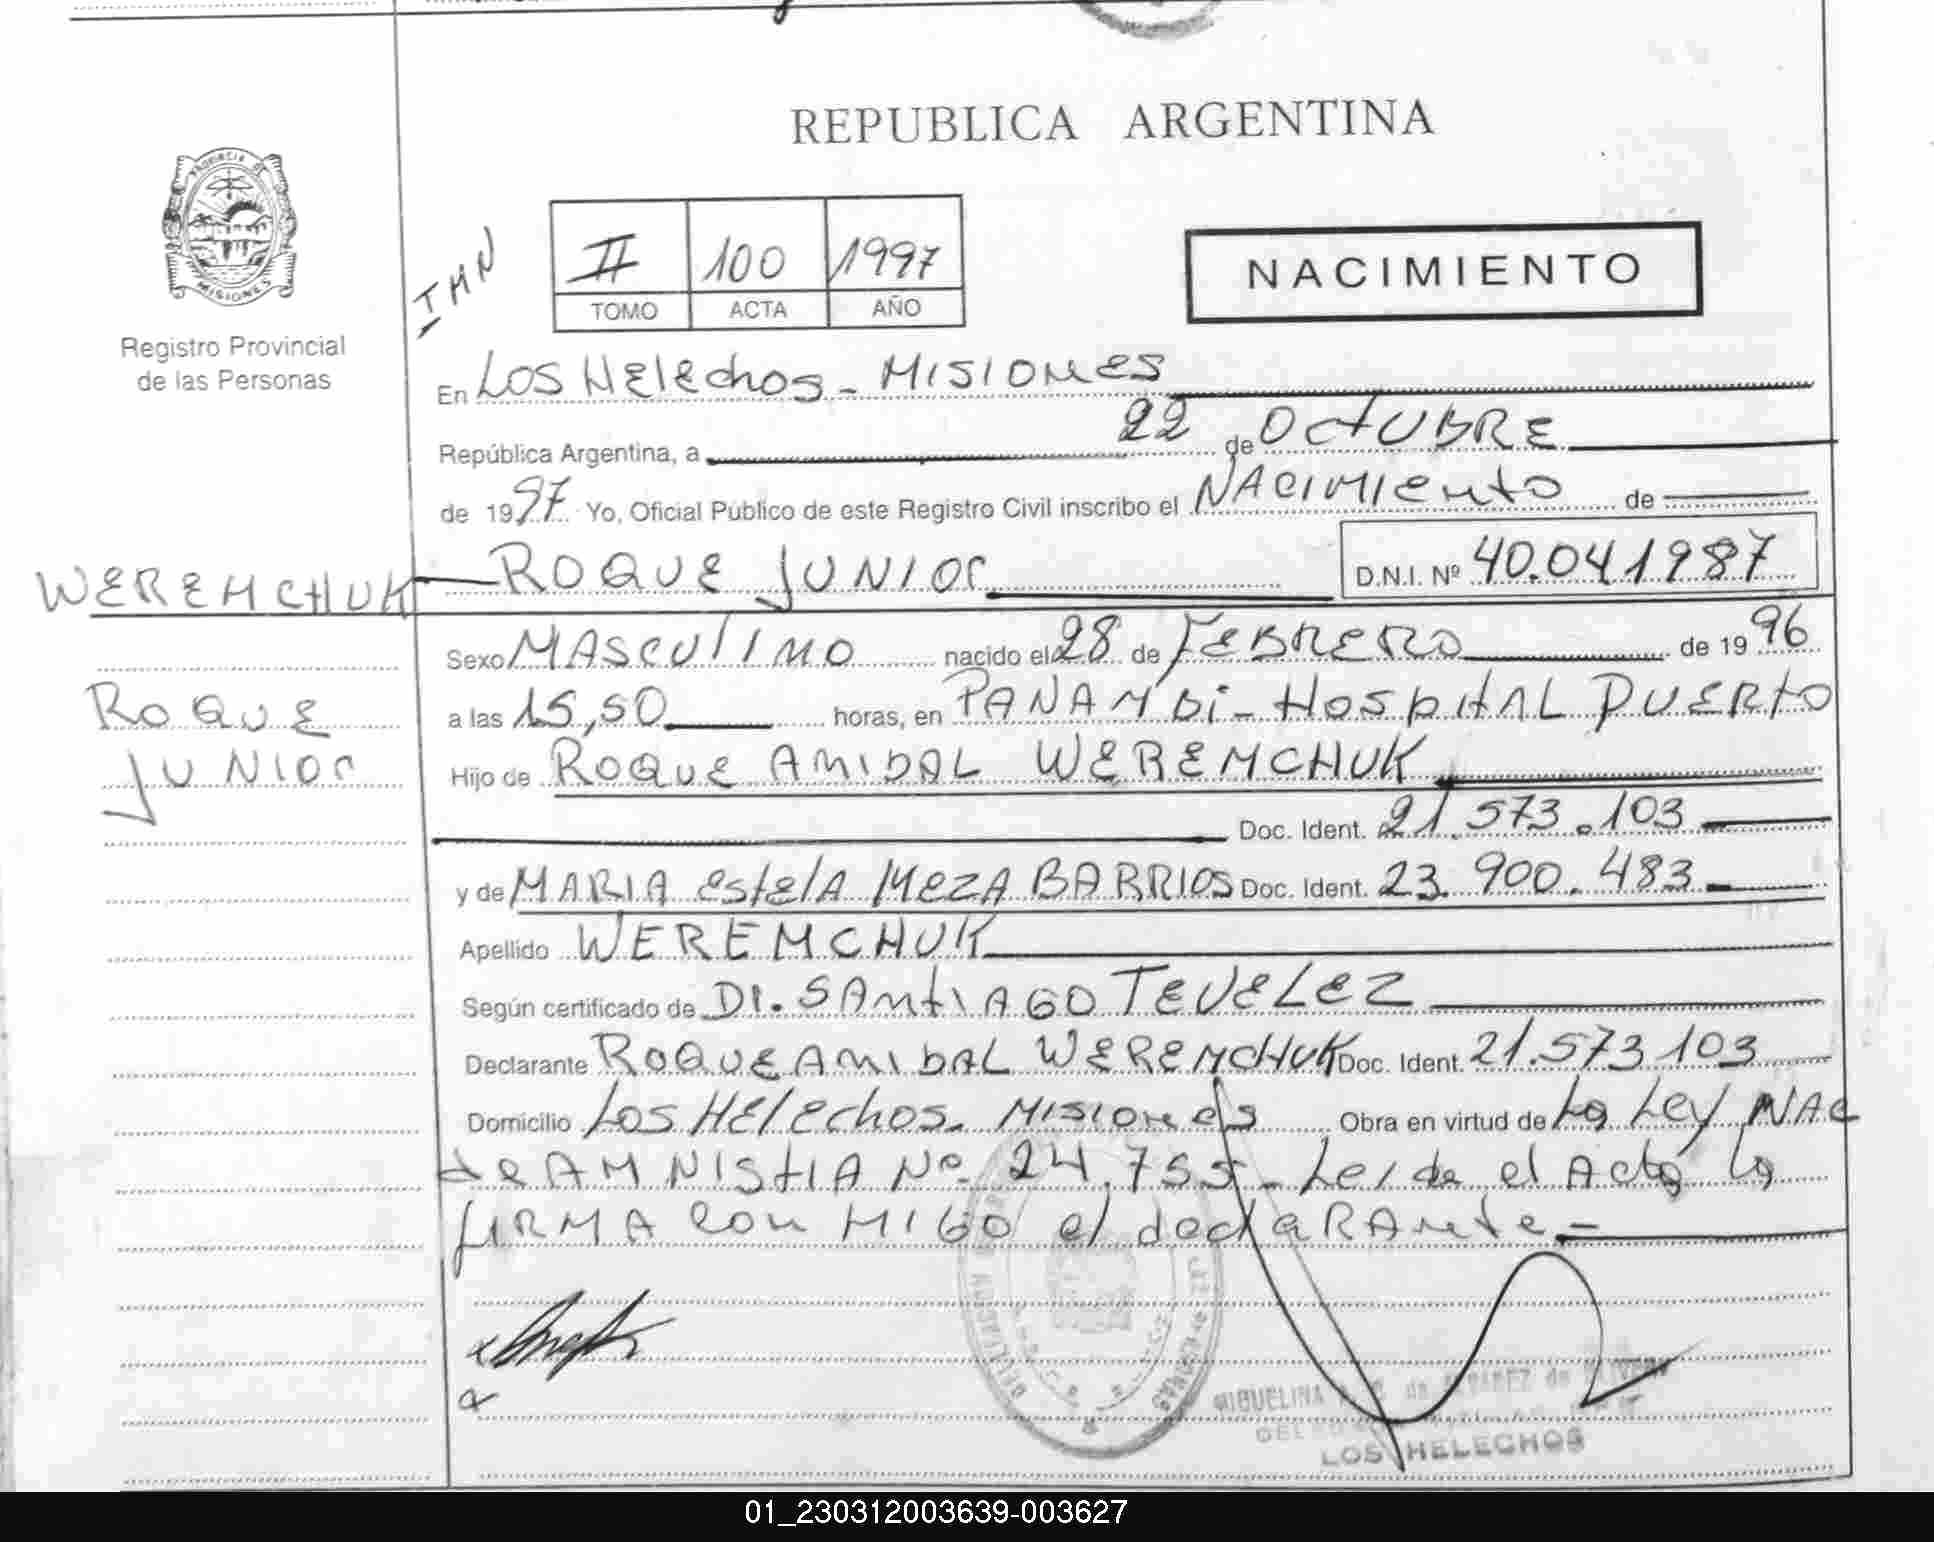 REPUBLICA ARGENTINA
PROVINCIA DE
MISIONES
Registro Provincial
de las Personas
II 100 1997
TOMO ACTA AÑO
NACIMIENTO
En Los Helechos - MISIONES
República Argentina, a 22 de OctUBRE
de 1997 Yo, Oficial Público de este Registro Civil inscribo el NACIMIento de
WEREMCHUK ROQUE JUNIOR D.N.I. Nº 40.041987
Sexo MASCULINO nacido el 28 de FEBRERO de 1996
ROQUE
JUNIOR
a las 15,50 horas, en PANAMBi - HospitAL PUERtO
Hijo de ROQUE ANIBAL WEREMCHUK
Doc. Ident. 21.573.103
y de MARIA EstelA MEZA BARRIOS Doc. Ident. 23.900.483
Apellido WEREMCHUK
Según certificado de Dr. SAntIAGO TEVELEZ
Declarante ROQUE ANIBAL WEREMCHUK Doc. Ident. 21.573.103
Domicilio Los HElEchos - MISIONES Obra en virtud de La Ley NAC
de AMNIStIA Nº 24.755 - Leida el Acta la
fIRMA con MIGO el declARAnte -
LOS HELECHOS
01_230312003639-003627